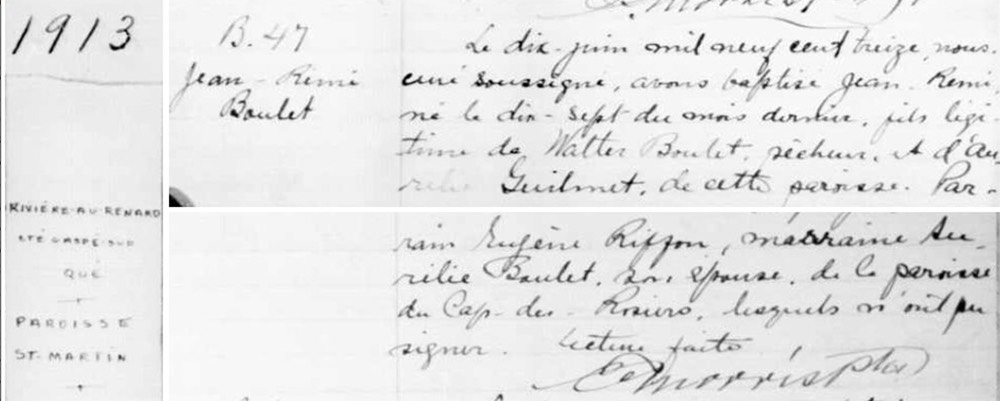 1913
RIVIÈRE-AU-RENARD
CTÉ GASPÉ-SUD
QUÉ
PAROISSE
ST-MARTIN
B. 47
Jean-Rémi
Boulet
Le dix-juin mil neuf cent treize, nous,
curé soussigné, avons baptisé Jean-Rémi,
né le dix-sept du mois dernier, fils légi-
time de Walter Boulet, pêcheur, et d'Au-
rélie Guilmet, de cette paroisse. Par-
rain Eugène Riffon, marraine Au-
rélie Boulet, son épouse, de la paroisse
du Cap-des-Rosiers, lesquels n'ont pu
signer. Lecture faite
Morris Ptre